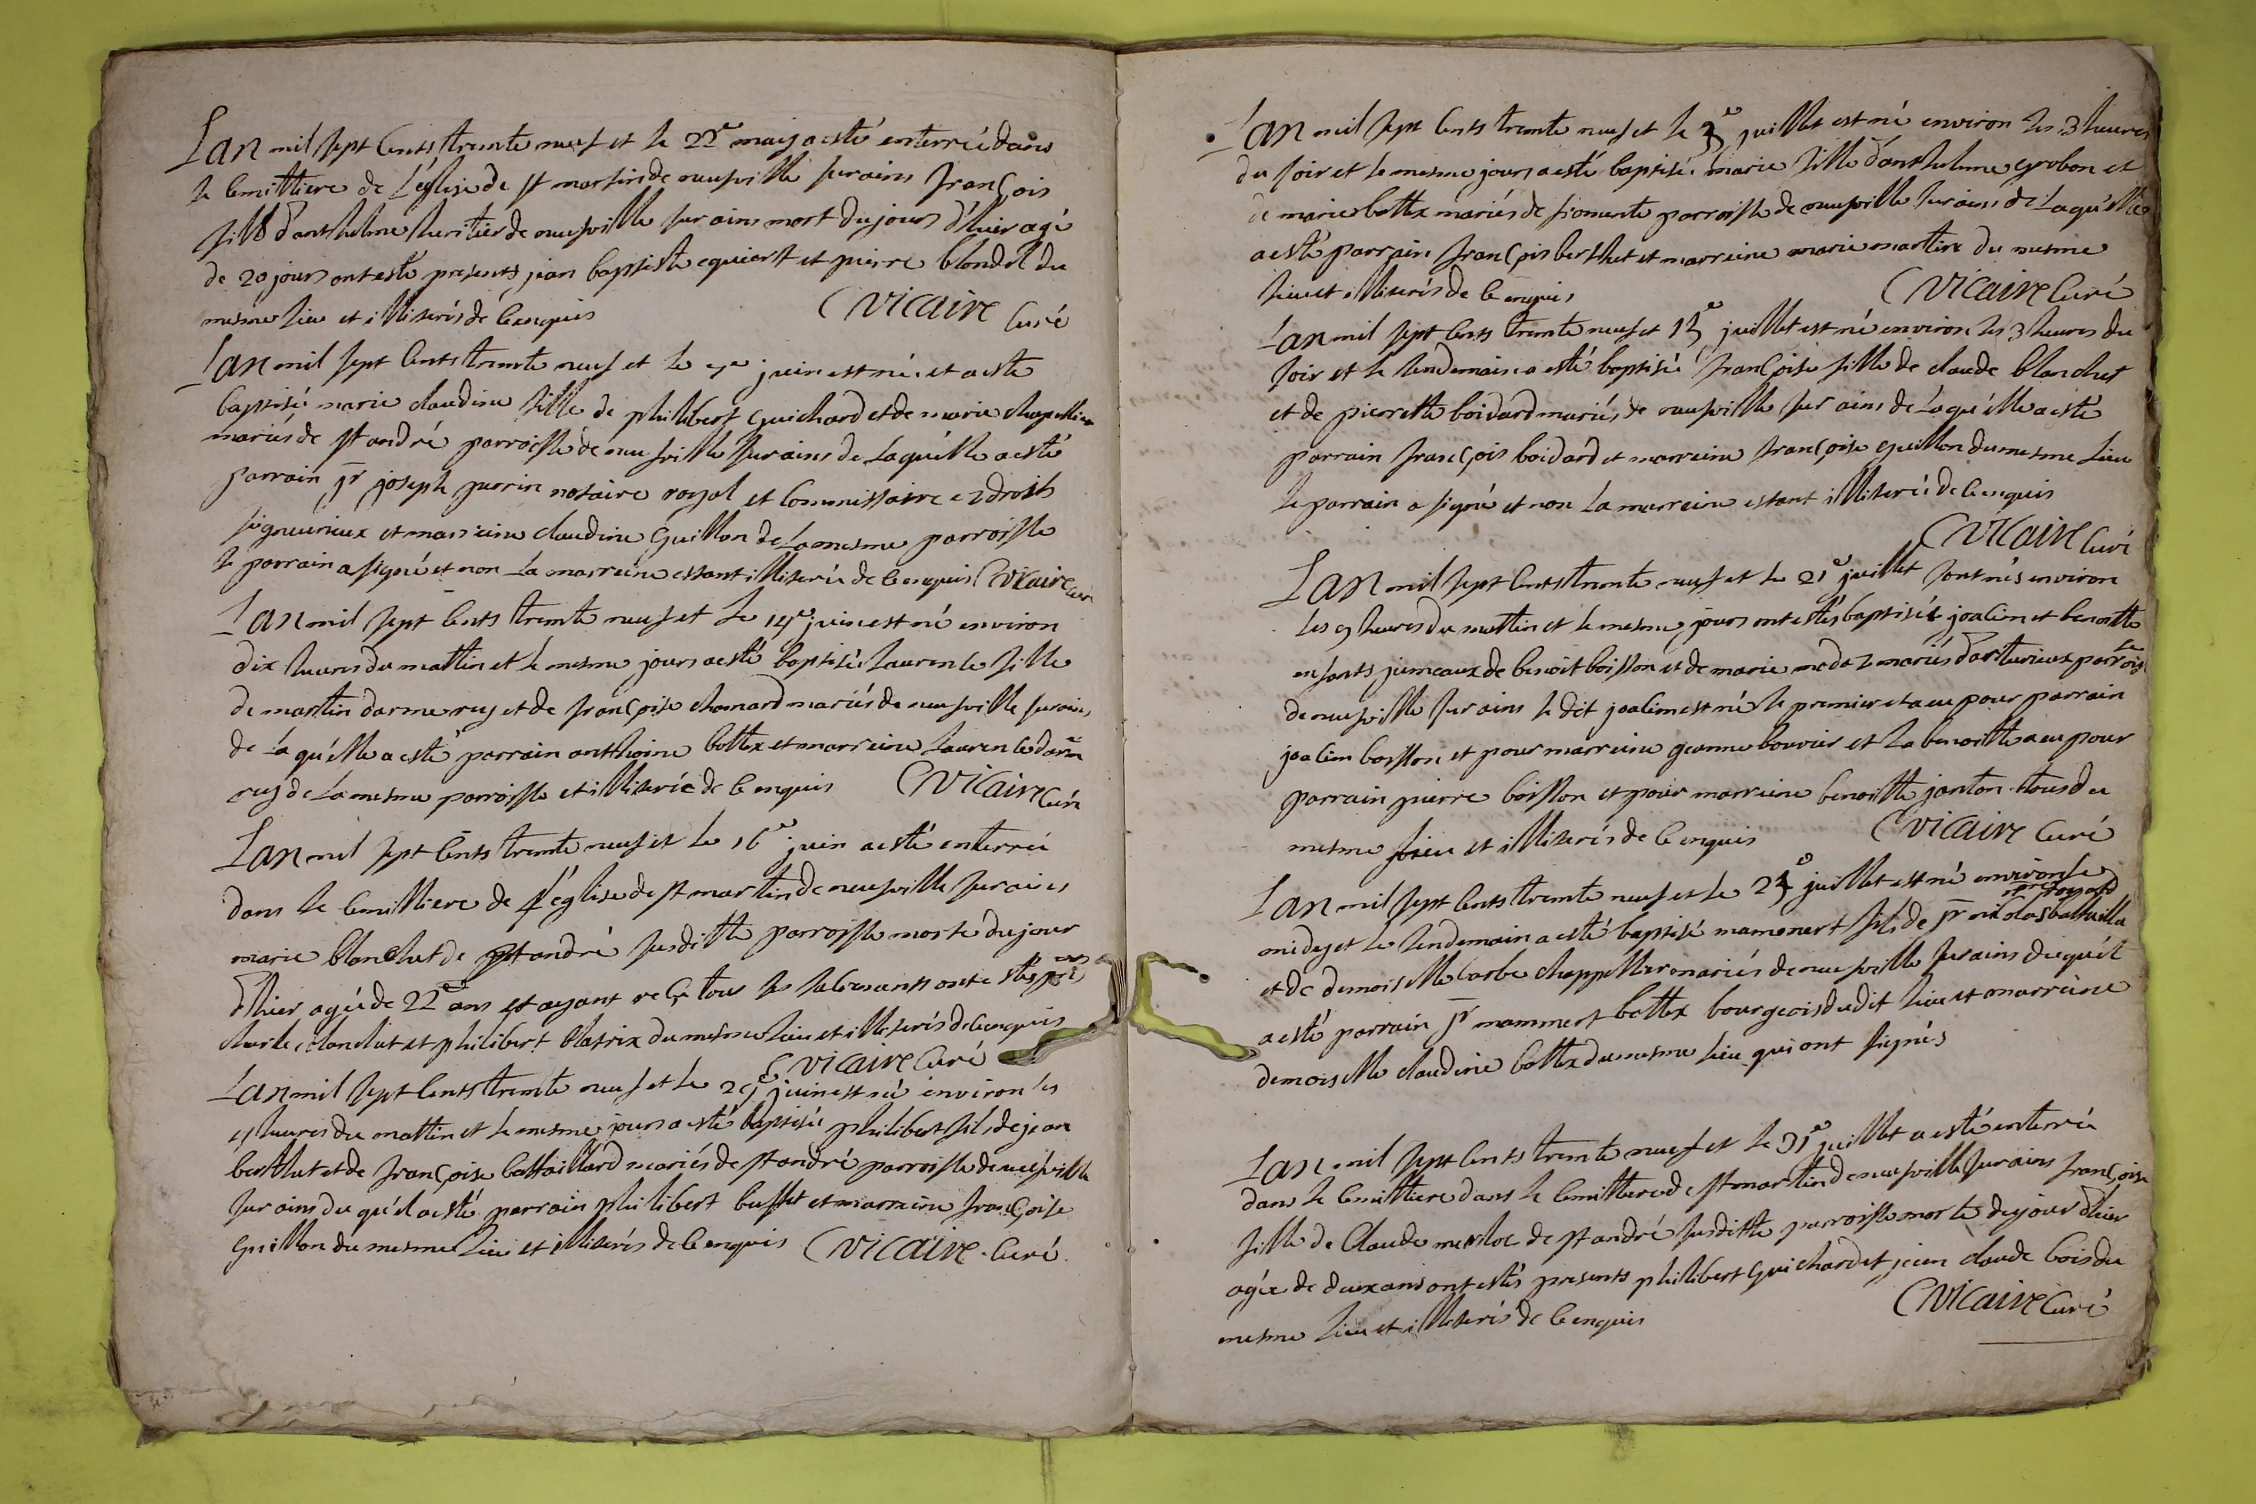 Lan mil sept cents trente neuf et le 22e may a esté enterré dans
le cemittiere de L'église de st martin de neufville sur ains françois
fils d'anthelme heritier de neufville sur ains mort du jours d'hier agé
de 20 jours ont esté presents jean baptiste equiert et pierre blondel du
mesme lieu et illiterés de ce enquis Vicaire Curé
Lan mil sept cents trente neuf et le juin est née et a este
baptisé marie claudine fille de philibert guichard et de marie chapellier
mariés de st andré parroisse de neufville sur ains de Laquélle a esté
parrain sr joseph perrin notaire royal et commissaire droits
signeuriaux et marreine claudine guillon de La mesme parroisse
le parrain a signé et non La marreine estant illiterée de ce enquis Vicaire cur
Lan mil sept cents trente neuf et Le 14e juin est né environ
dix heures du mattin et le mesme jours a esté baptisée Laurence fille
de martin darmerey et de françoise chanard mariés de neufville sur ains
de Laquélle a esté parrain anthoine bottex et marreine Laurence darm
erey de La mesme parroisse et illiterée de ce enquis Vicaire Curé
Lan mil sept cents trente neuf et Le 16e juin a esté enterré
dans le cemittiere de l'église de st martin de neufville sur ains
marie blanchet de st andré susditte parroisse morte du jour
d'hier agée de 22 ans et ayant recu tous les sacremants ont estés prts
charle blanchet et philibert blatrix du mesme lieu et illiterés de ce enquis
Vicaire Curé
Lan mil sept cents trente neuf et Le juin est né environ les
heures du mattin et le mesme jours a esté baptisée philibert fils de jean
berthet et de françoise battaillard mariés de st andré parroisse de neufville
sur ains du quél a esté parrain philibert buffet et marreine françoise
guillon du mesme Lieu et illiterés de ce enquis Vicaire Curé
Lan mil sept cents trente neuf et le 3e juillet est né environ les 3 heures
du soir et le mesme jours a esté baptisée marie fille d'anthelme grobon et
de marie bottex mariés de fromente parroisse de neufville sur ains de Laquélle
a esté parrain françois berthet et marreine marie martin du mesme
lieu et illiterés de ce enquis Vicaire Curé
Lan mil sept cents trente neuf et 13e juillet est né environ les 3 heures du
soir et le lendemain a esté baptisée françoise fille de claude blanchet
et de pierrette boidard mariés de neufville sur ains de Laquélle a esté
parrain françois boidard et marreine françoise guillon du mesme Lieu
le parrain a signé et non La marreine estant illiterée de ce enquis
Vicaire Curé
Lan mil sept cents trente neuf et Le 21e juillet sont nés environ
Les 9 heures du mattin et le mesme jours ont estés baptisés joacim et benoitte
enfants jumeaux de benoit boisson et de marie mariés parroisse
de neufville sur ains le dit joacim est né le premier et a eu pour parrain
joacim boisson et pour marreine jeanne bouvier et La benoitte a eu pour
parrain pierre boisson et pour marreine benoitte janton tous du
mesme Lieu et illiterés de ce enquis Vicaire Curé
Lan mil sept cents trente neuf et Le 23e juillet est né environ le
midy et Le lendemain a esté baptisé mammert fils de sr nicolas
et de demoiselle barbe chappellier mariés de neufville sur ains du quél
a esté parrain sr mammert bottex bourgeois dudit Lieu et marreine
demoiselle claudine bottex du mesme Lieu qui ont signés
Lan mil sept cents trente neuf et le 31e juillet a esté enterrée
dans le cemittiere dans le cemittiere de st martin de neufville sur ains françoise
fille de Claude merloc de st andré susditte parroisse morte du jour d'hier
agée de deux ans ont estés presents philibert guichard et jean claude bois du
mesme Lieu et illiterés de ce enquis Vicaire Curé